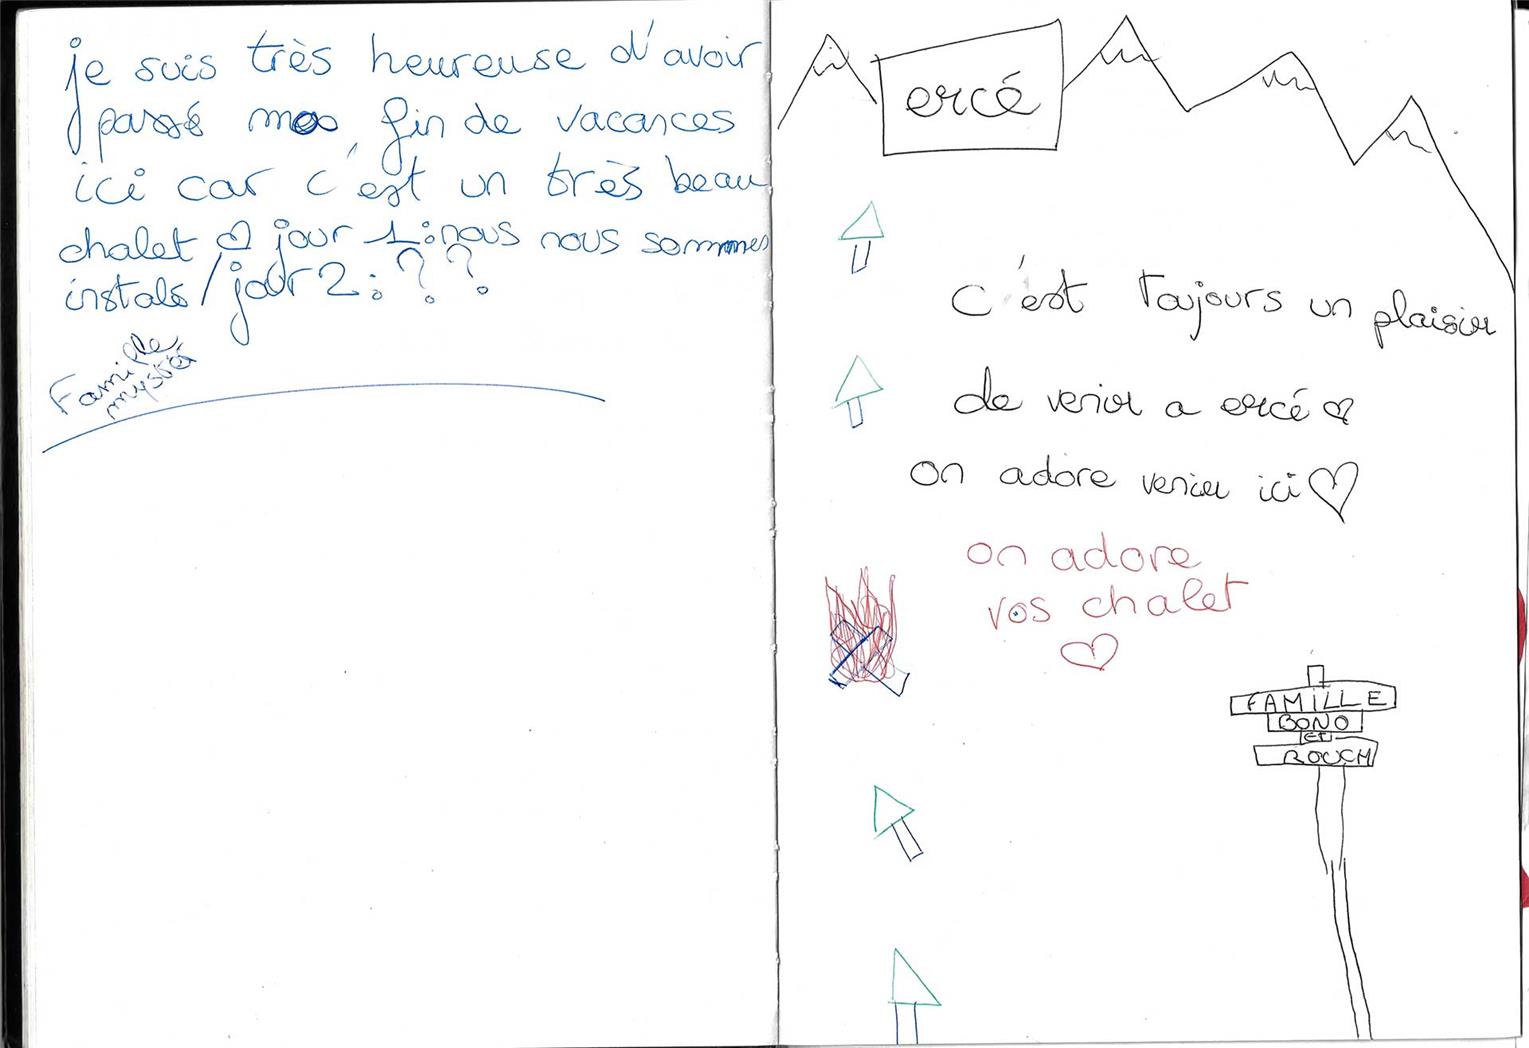 je suis très heureuse d'avoir
passé mes fin de vacances
ici car c'est un très beau
chalet jour 1 : nous nous sommes
instals / jour 2 : ? ?
Famille
ercé
C'est toujours un plaisir
de venir a ercé
on adore venir ici
on adore
vos chalet
FAMILLE
BONO
ET
ROUCH